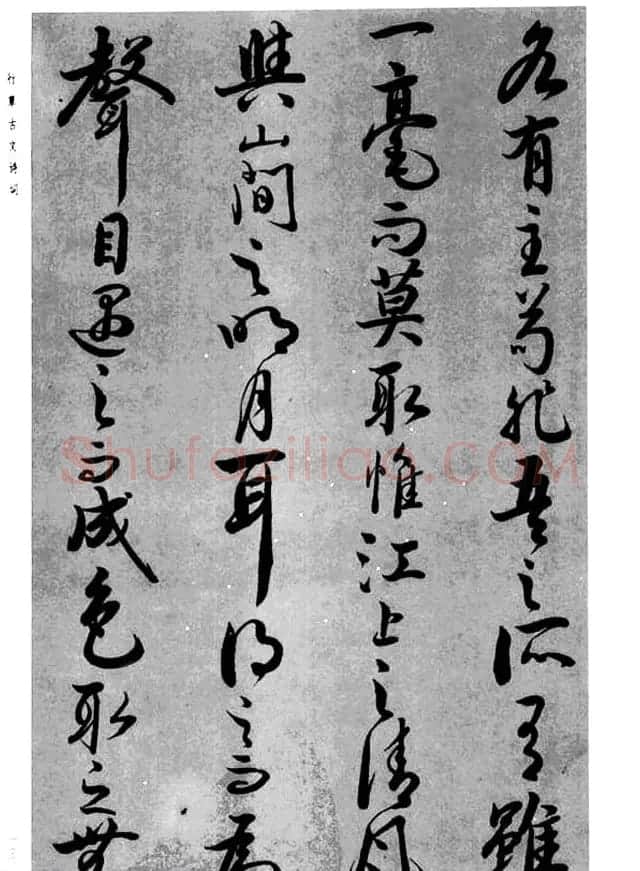 各有主苟非吾之所有雖
一毫而莫取惟江上之清風
與山間之明月耳得之而為
聲目遇之而成色取之無
行草古文詩詞
Shufaziliao.COM